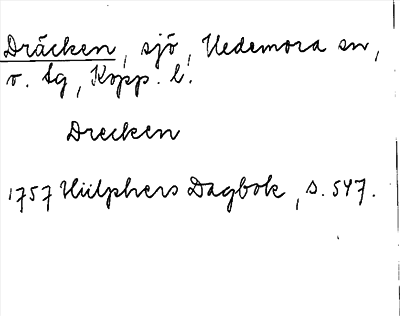 Dräcken, sjö, Hedemora sn,
v. tg, Kopp. l.
Drecken
1757 Hülphers Dagbok, s. 547.